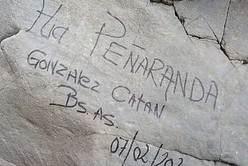 Flia PEÑARANDA
GONZALEZ CATAN
Bs.As.
07/02/202